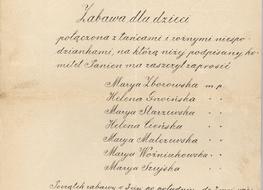 Zabawa dla dzieci
połączona z tańcami i różnymi niespo-
dziankami, na którą niżej podpisany ko-
mitet Panien ma zaszczyt zaprosić
Marya Zborowska m.p.
Helena Gnoińska " "
Marya Starzewska " "
Helena " "
Marya Malczewska " "
Marya Woźniachowska " "
Marya Szujska " "
Początek zabawy o 3ciej po południu